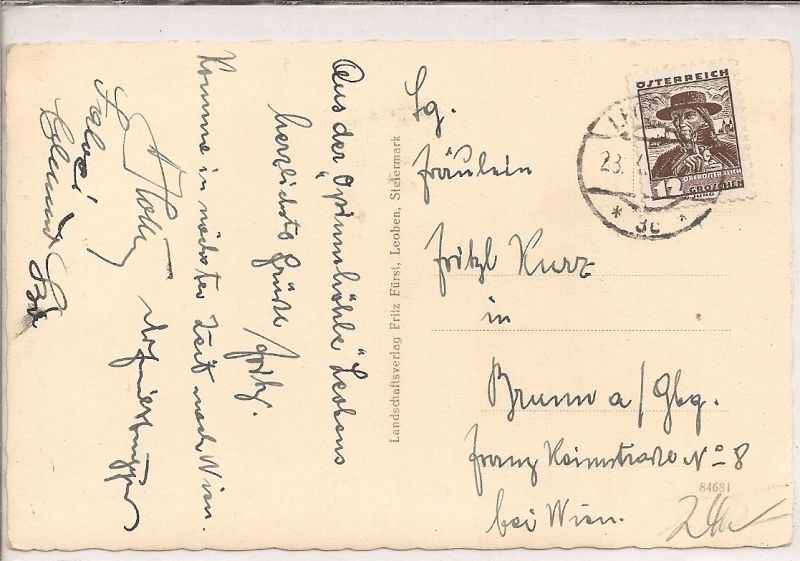 Aus der "Opiumhöhle" Leobens
herzlichste Grüße
Fritz.
Komme in nächster Zeit nach Wien.
Landschaftsverlag Fritz Fürst, Leoben, Steiermark
ÖSTERREICH
OBERÖSTERREICH
12 GROSCHEN
23.
* 3c *
Fräulein
Fritzl Kurz
in
Brunn a/Gbg.
Franz Keimstraße No 8
bei Wien.
84681